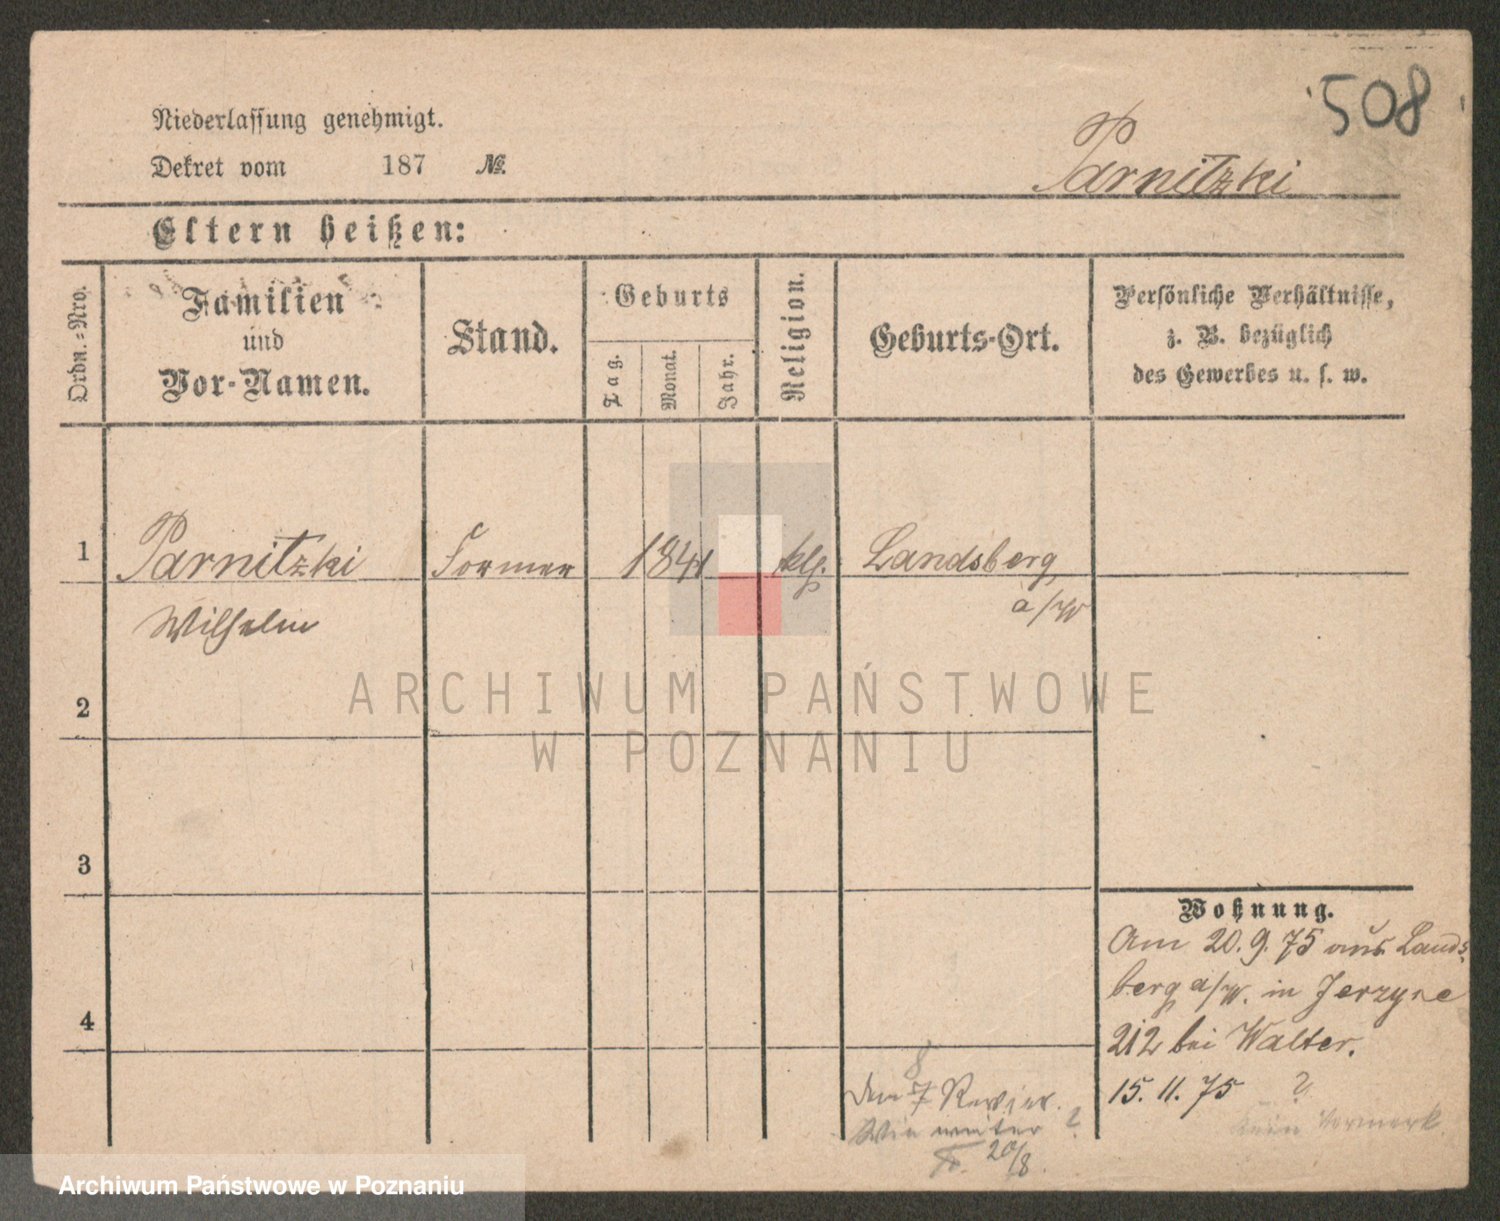 508
Niederlassung genehmigt.
Dekret vom 187 No.
Parnitzki
Eltern heißen:
Ordn.=Nro.
Familien
und
Vor-Namen.
Stand.
Geburts
Tag.
Monat.
Jahr.
Religion.
Geburts-Ort.
Persönliche Verhältnisse,
z. B. bezüglich
des Gewerbes u. s. w.
1 Parnitzki Former 1841 kth. Landsberg
Wilhelm a/W
ARCHIWUM PAŃSTWOWE
W POZNANIU
2
3
4
Wohnung.
Am 20.9.75 aus Lands-
berg a/W. in Jerzyce
212 bei Walter.
15.11.75 ?
kein Vermerk.
8
Dem 7 Revier.
Wie weiter ?
20/8.
Archiwum Państwowe w Poznaniu